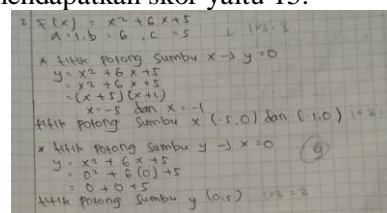 mendapatkan skor yaitu 15.
2 F(x) = x² + 6x + 5
a = 1, b = 6, c = 5 1x3=3
* titik potong sumbu x → y = 0
y = x² + 6x + 5
= x² + 6x + 5
= (x + 5) (x + 1)
x = -5 dan x = -1
titik potong sumbu x (-5,0) dan (-1,0)
* titik potong sumbu y → x = 0
y = x² + 6x + 5
= 0² + 6(0) + 5
= 0 + 0 + 5
titik potong sumbu y (0,5) 1x3 = 3